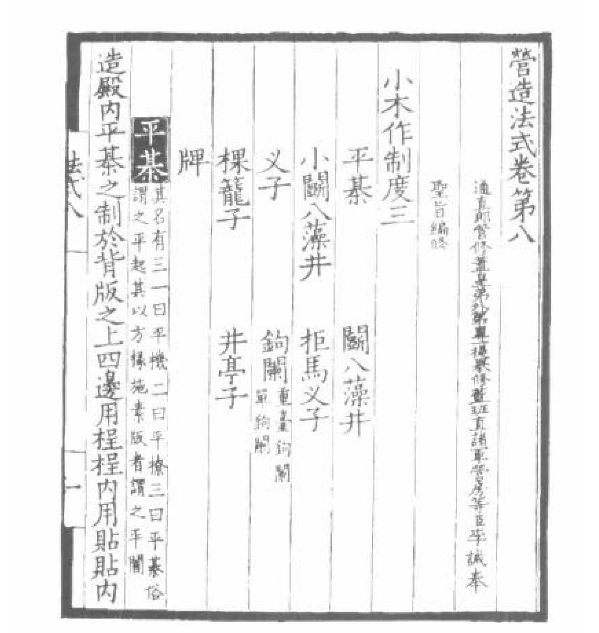 營造法式卷第八
通直郎管修蓋皇弟外第專一提舉修蓋班直諸軍營房等臣李誡奉
聖旨編修
小木作制度三
平棊 鬭八藻井
小鬭八藻井 拒馬义子
义子 鉤闌 重臺鉤闌 單鉤闌
棵籠子 井亭子
牌
平棊 其名有三一曰平機二曰平橑三曰平棊俗
謂之平起其以方椽施素版者謂之平闇
造殿內平棊之制於背版之上四邊用桯桯內用貼貼內
法式八
一